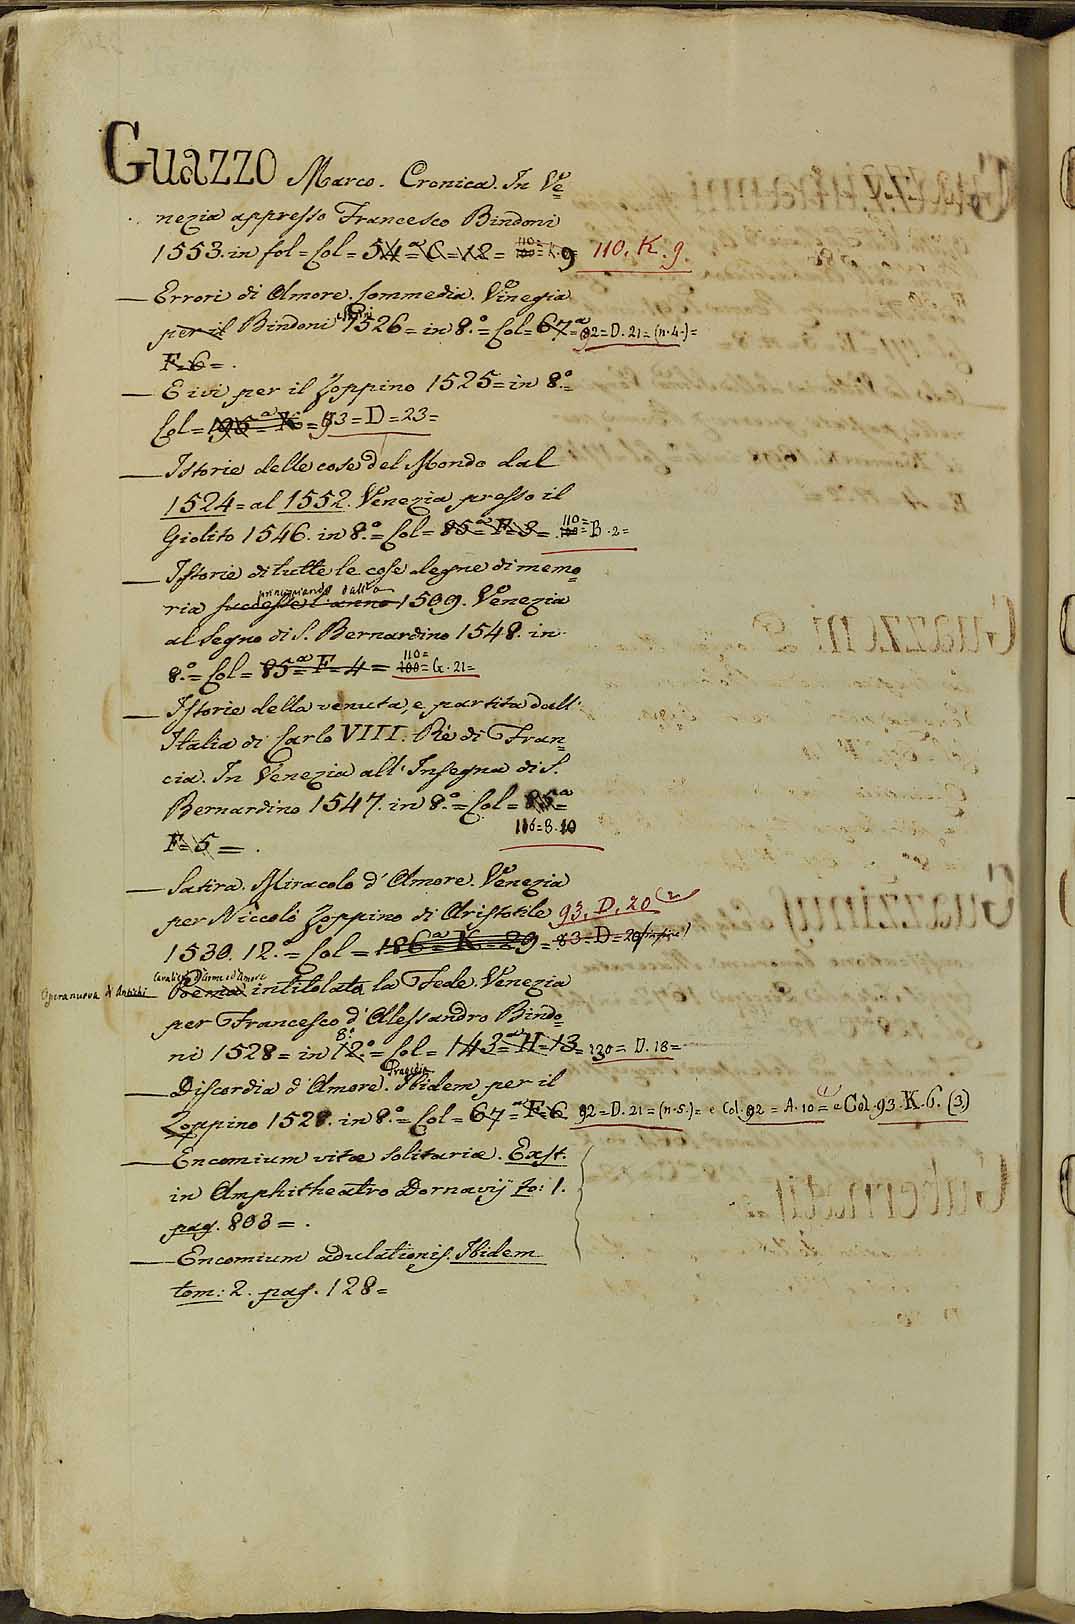 Guazzo Marco. Cronica. In Ve=
nezia appresso Francesco Bindoni
1553. in fol = Col = 54 = C = 12 = 110 = K. 9 110. K. 9.
— Errori di Amore. Commedia. Vinegia
per il Bindoni 1526 = in 8.° = Col = 67 = a 92 = D. 21 = (n. 4.) =
F. 6 = .
— E ivi per il Zoppino 1525 = in 8.° =
Col = 195 a K = 93 = D = 23 =
— Istorie delle cose del Mondo dal
1524 = al 1552. Venezia presso il
Giolito 1546. in 8.° = Col = 85 a F. 3 = 110 = B. 2 =
— Istorie di tutte le cose degne di memo=
principiando dall'a
ria successe l'anno 1509. Venezia
al Segno di S. Bernardino 1548. in
8.° = Col = 85 a F = 4 = 110 = 100 = G. 21 =
— Istorie della venuta, e partita dall'
Italia di Carlo VIII. Rè di Fran=
cia. In Venezia all'Insegna di S.
Bernardino 1547. in 8.° = Col = 85 a =
F. 5 = . 116 = B. 10
— Satira. Miracolo d'Amore. Venezia
per Niccolò Zoppino di Aristotile 93. D. 20 (2
1530. 12.° = Col = 186 a K = 29 = 83 = D = 20
Cavalieri D'arme ed'Amore
Opera nuova d'Antichi — Poema intitolata la Fede. Venezia
per Francesco d'Alessandro Bindo=
8.°
ni 1528 = in 12.° = Col = 143 a H = 13 = 130 = D. 18 =
Tragedia
— Discordia d'Amore. Ibidem per il
Zoppino 1528. in 8.° = Col = 67 = a F = 6 92 = D. 21 = (n. 5.) = e Col. 92 = A. 10 = e Col. 93. K. 6. (3.)
— Encomium vitæ solitariæ. Exst.
in Amphitheatro Dornavij To: 1.
pag. 803 = .
— Encomium adulationis. Ibidem
tom: 2. pag. 128 =